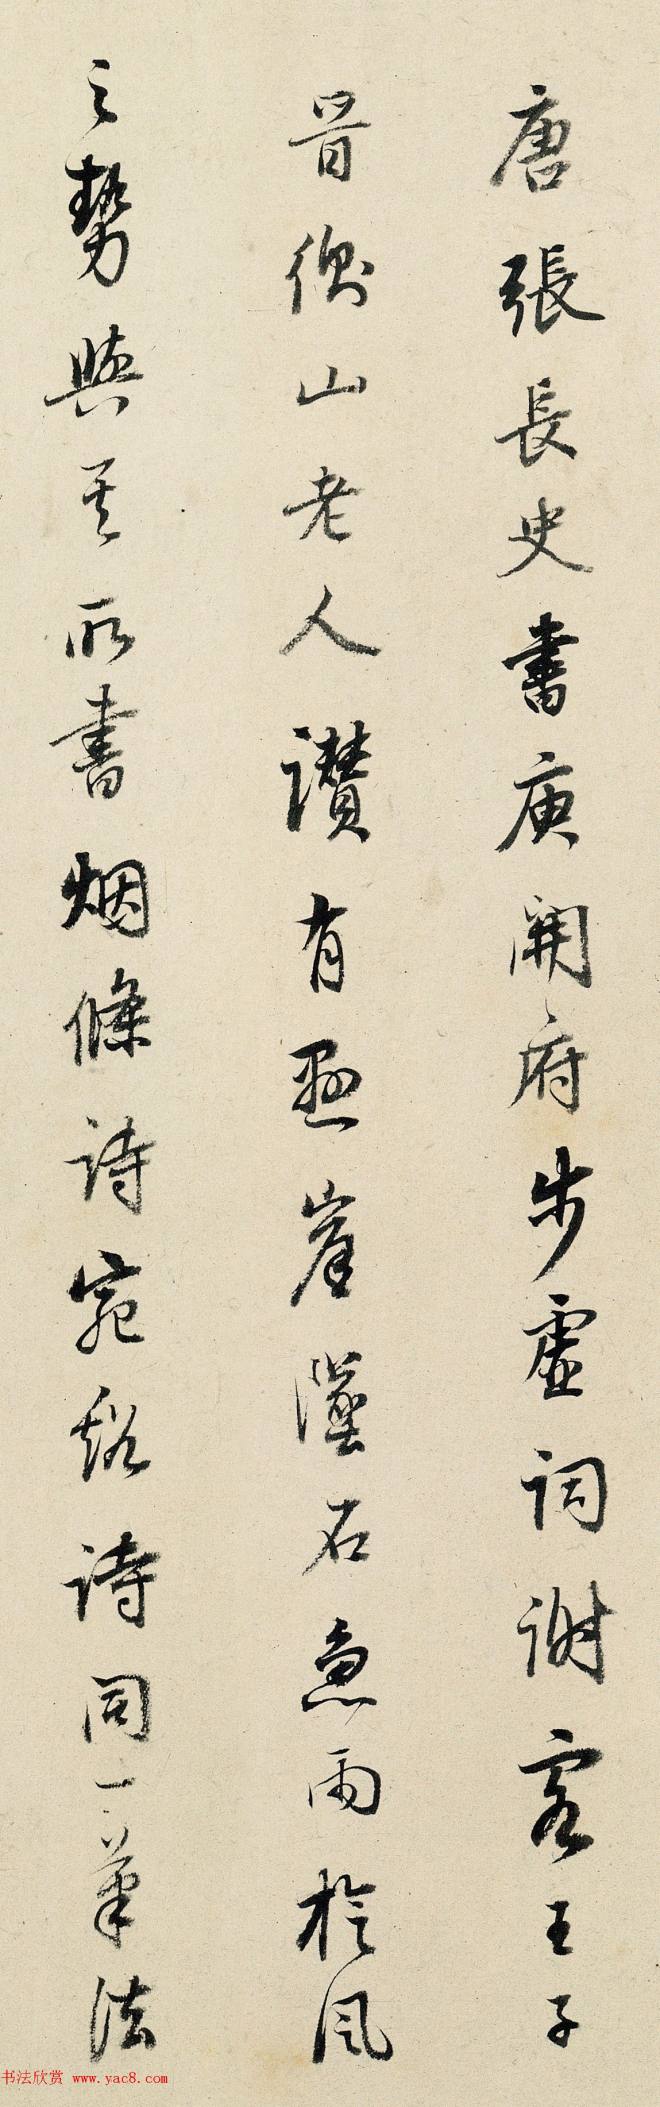 唐張長史書庾開府步虛詞謝客王子
晉衡山老人讚有懸崖墜石急雨旋風
之勢與其所書烟條詩宛谿詩同一筆法
书法欣赏 www.yac8.com